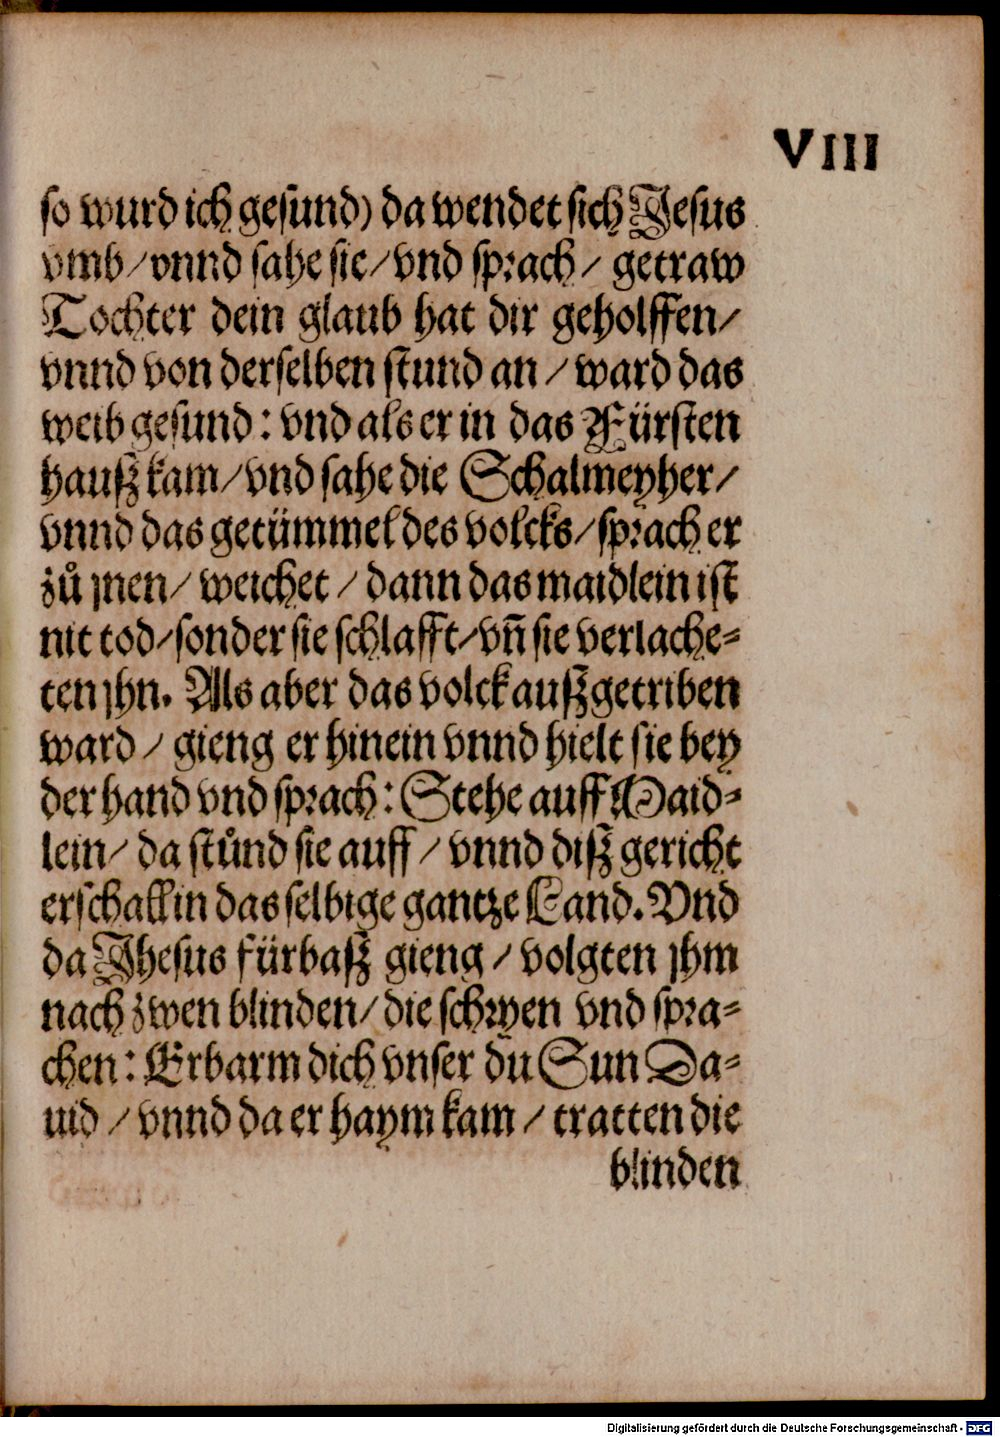 VIII
so wurd ich gesund) da wendet sich Jesus
vmb/vnnd sahe sie/vnd sprach/ getraw
Tochter dein glaub hat dir geholffen/
vnnd von derselben stund an/ ward das
weib gesund: vnd als er in das Fürsten
hauß kam/vnd sahe die Schalmeyher/
vnnd das getümmel des volcks/sprach er
zů jnen/ weichet/ dann das maidlein ist
nit tod/sonder sie schlafft/vñ sie verlache=
ten jhn. Als aber das volck außgetriben
ward/ gieng er hinein vnnd hielt sie bey
der hand vnd sprach: Stehe auff Maid=
lein/ da stůnd sie auff/ vnnd diß gericht
erschall in das selbige gantze Land. Vnd
da Jhesus fürbaß gieng/ volgten jhm
nach zwen blinden/ die schryen vnd spra=
chen: Erbarm dich vnser du Sun Da=
uid/ vnnd da er haym kam/ tratten die
blinden
Digitalisierung gefördert durch die Deutsche Forschungsgemeinschaft - DFG